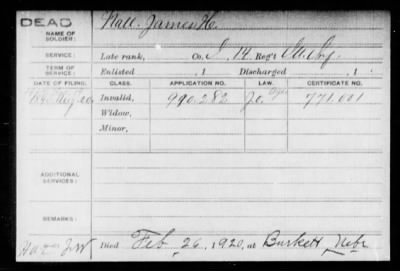 DEAD
NAME OF SOLDIER:
Hall, James H.
SERVICE:
Late rank, Co. I, 14 Reg't Ill. Inf.
TERM OF SERVICE:
Enlisted , 1 Discharged , 1
DATE OF FILING. CLASS. APPLICATION NO. LAW. CERTIFICATE NO.
Invalid, 990.282 771.001
Widow,
Minor,
ADDITIONAL SERVICES:
REMARKS:
Died Feb 26, 1920, at Burkett Nebr